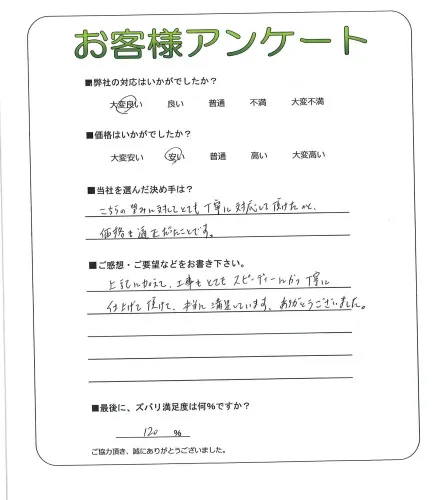 お客様アンケート
■弊社の対応はいかがでしたか？
大変良い 良い 普通 不満 大変不満
■価格はいかがでしたか？
大変安い 安い 普通 高い 大変高い
■当社を選んだ決め手は？
こちらの望みに対してとても丁寧に対応して頂けたかと、
価格も適正だたことです。
■ご感想・ご要望などをお書き下さい。
上記に加えて、工事もとてもスピーディーにかつ丁寧に
仕上げて頂けて、本当に満足しています。ありがとうございました。
■最後に、ズバリ満足度は何％ですか？
120 %
ご協力頂き、誠にありがとうございました。